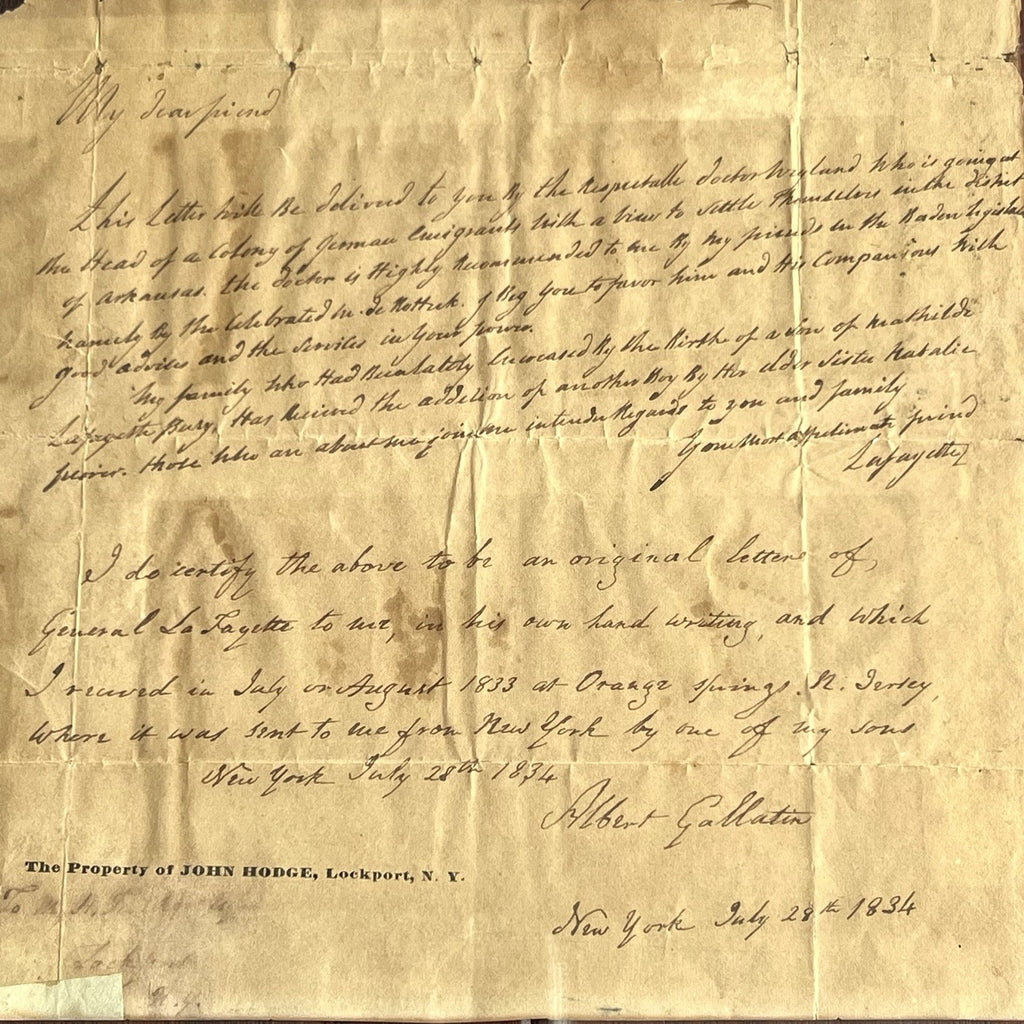 My dear friend
this Letter will Be delivered to you By the Respectable doctor Wayland who is going at
the Head of a Colony of German Emigrants With a View to Settle Themselves in the district
of Arkansas. the doctor is Highly Recommended to me By my friends in the Baden legislature
Namely By the Celebrated M. de Rotteck. I Beg you to favor him and His Companions With
good advices and the Services in Your power.
My family who Had Been lately Encreased By the Birth of a Son of Mathilde
Lafayette Bury, Has Received the addition of another Boy By Her elder Sister Natalie
perier. those who are about me join me in tender Regards to you and family
Your most affectionate friend
Lafayette
I do certify the above to be an original letter of
General LaFayette to me, in his own hand writing, and which
I received in July or August 1833 at Orange springs. N. Jersey,
where it was sent to me from New York by one of my sons
New York July 28th 1834
Albert Gallatin
The Property of JOHN HODGE, Lockport, N. Y.
New York July 28th 1834
To
Lockport
N.Y.